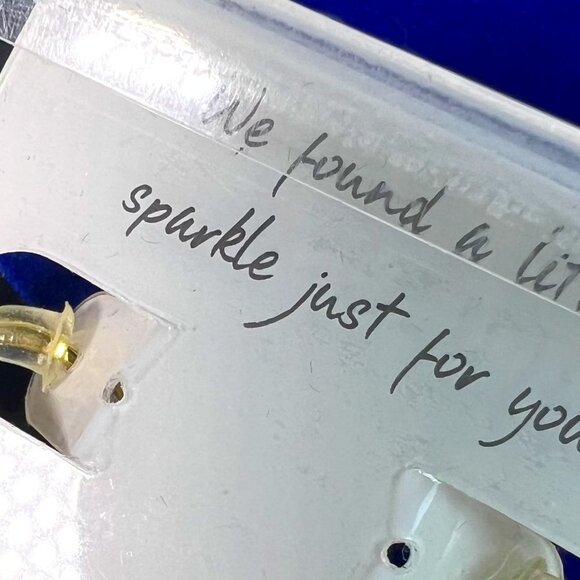 We found a lit
sparkle just for you